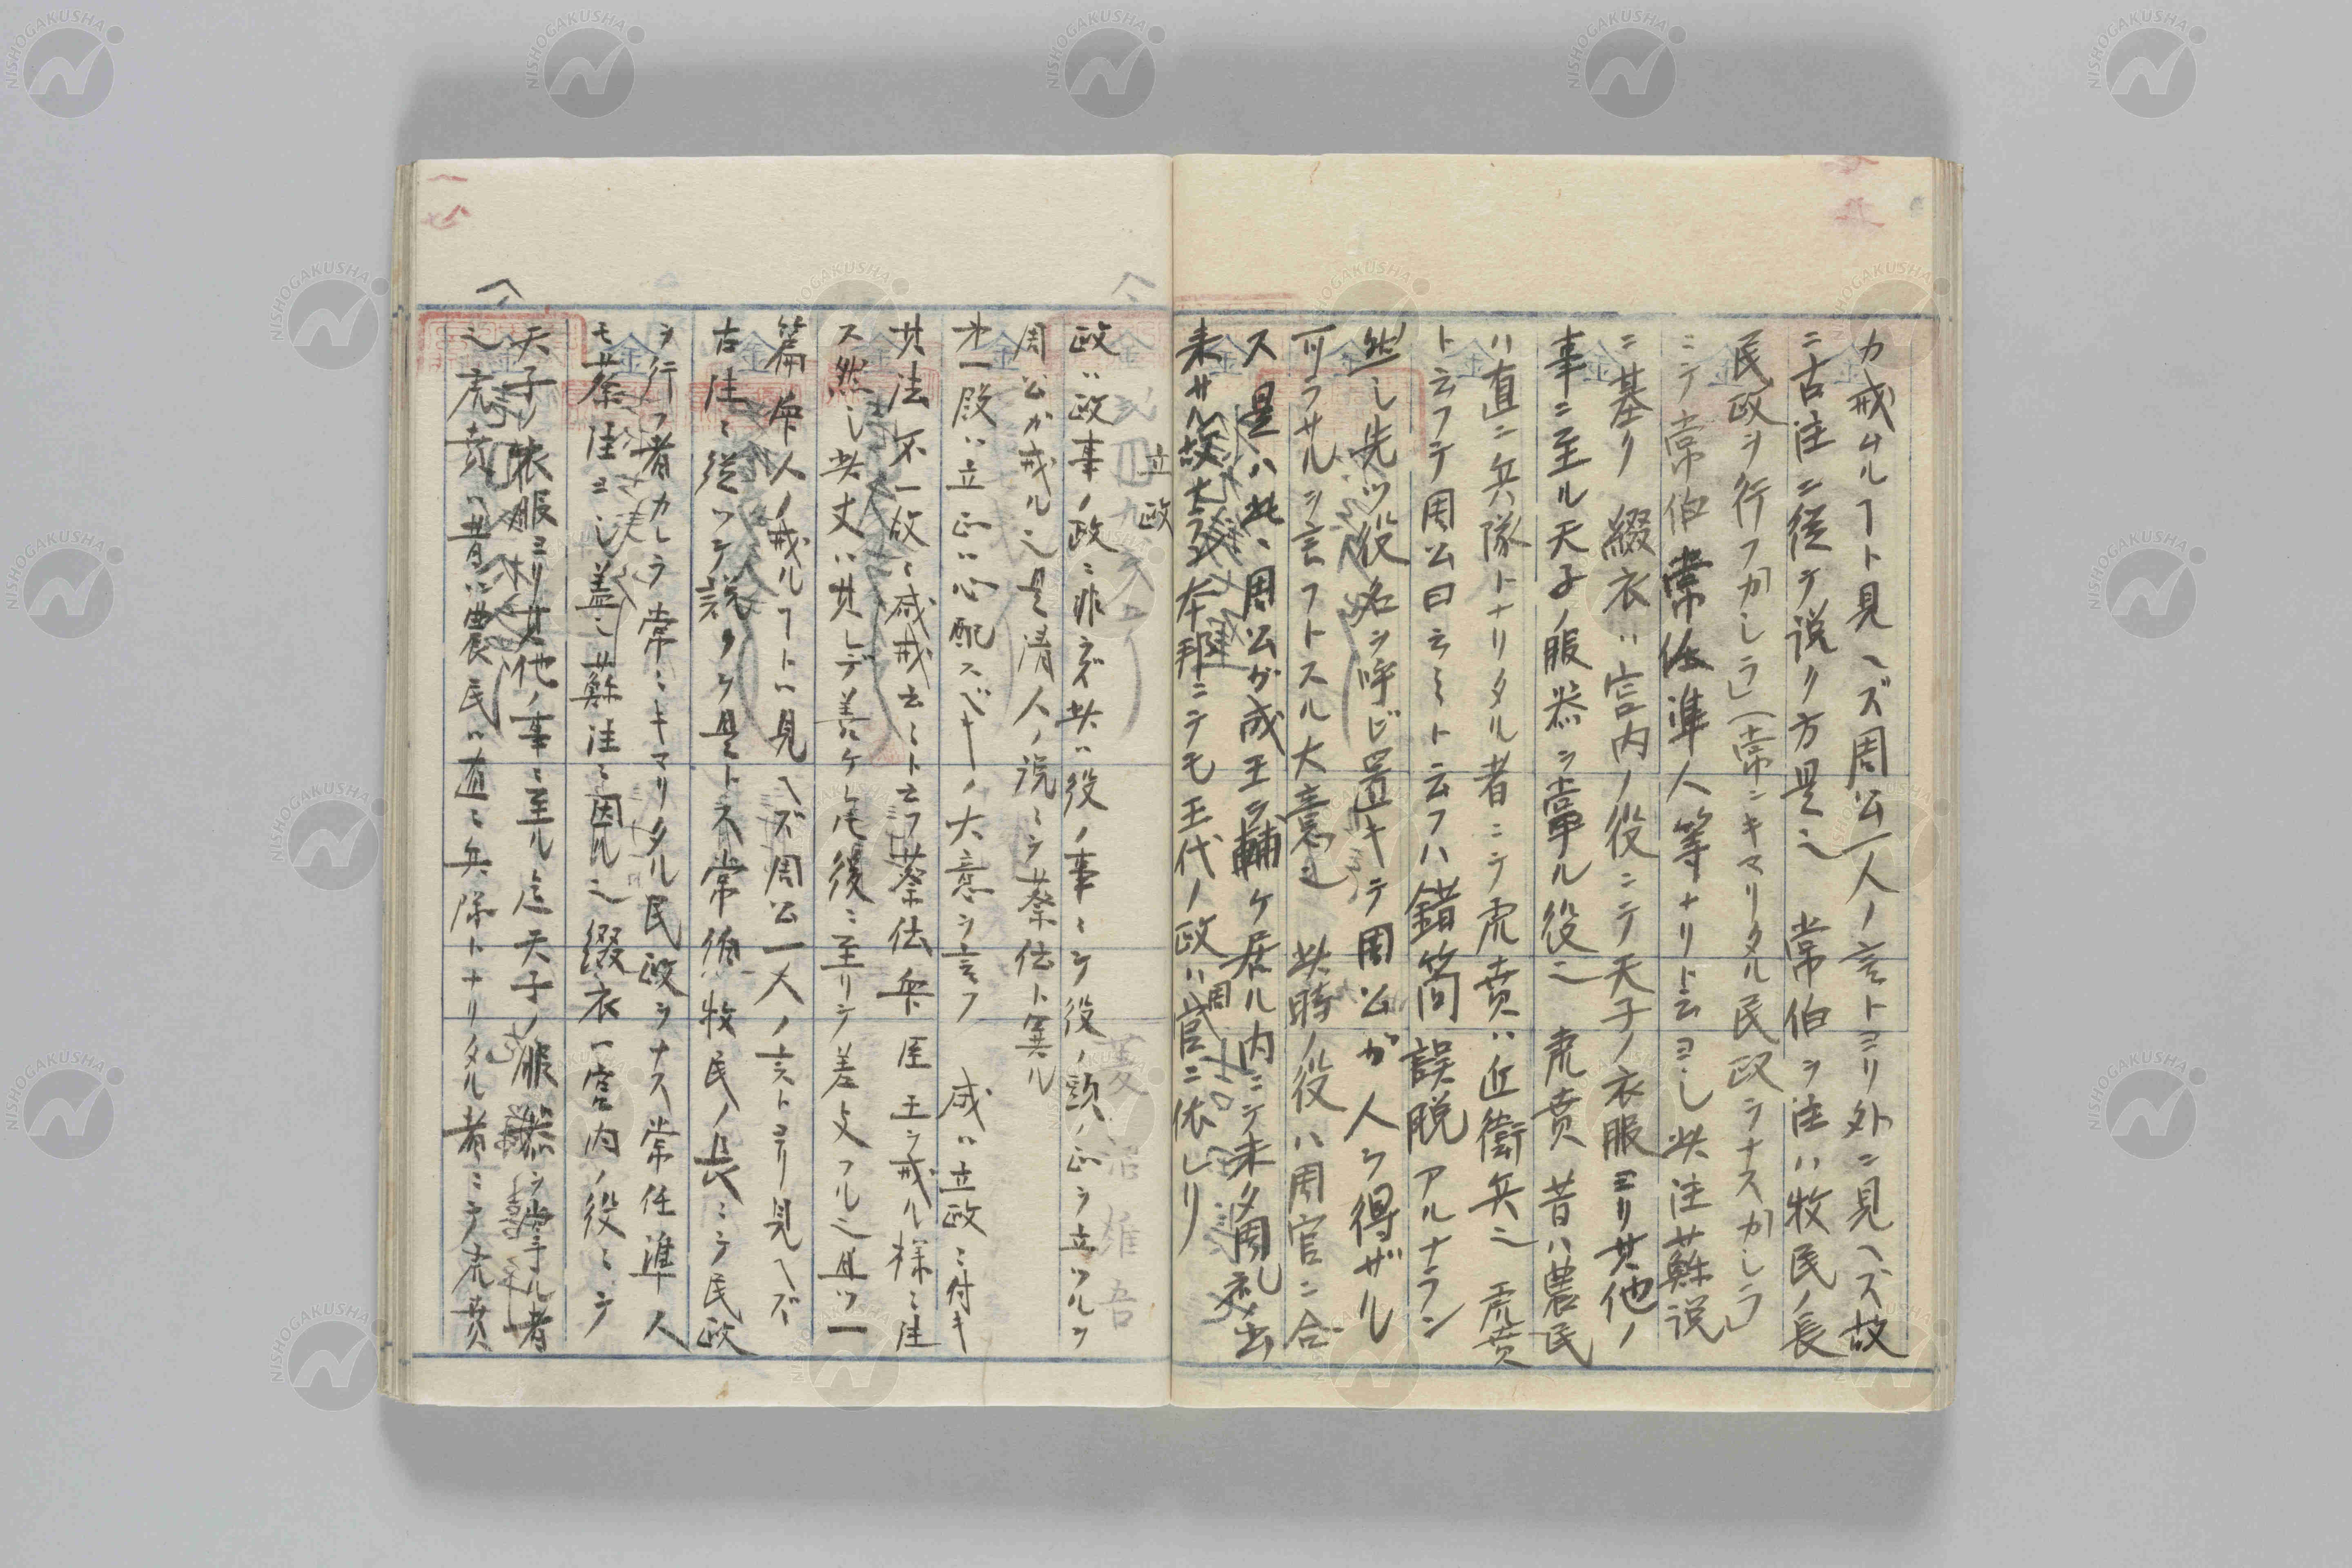 カ戒ムルヿト見ヘズ周公一人ノ言トヨリ外ニ見ヘズ故
ニ古注ニ従テ説ク方是也 常伯ヲ注ハ牧民ノ長
民政ヲ行フカシラ」(常ニキマリタル民政ヲナスカシラ」
ニテ常伯常任準人等ナリト云ヨシ此注蘇説
ニ基ク 綴衣ハ宮内ノ役ニテ天子ノ衣服ヨリ其他ノ
事ニ至ル天子ノ服器ヲ掌ル役也 虎賁昔ハ農民
ハ直ニ兵隊トナリタル者ニテ虎賁ハ近衛兵也 虎賁
ト云フテ周公曰云々ト云フハ錯簡誤脱アルナラン
然シ先ツ役名ヲ呼ビ置キテ周公ガ人ヲ得ザル
可ラサルヲ言フトスル大意也 此時ノ役ハ周官ニ合
ス是ハ此ハ周公ガ成王ヲ輔ケ居ル内ニテ未タ周礼出
来サル故 本邦ニテモ王代ノ政ハ周官ニ依レリ
立政
政ハ政事ノ政ニ非ラズ此ハ役ノ事ニシテ役ノ頭ノ正ヲ立ツルヲ
周公カ戒ル也是清人ノ説ニテ蔡伝ト異ル
第一段ハ立正ハ心配スベキノ大意ヲ言フ 咸ハ立政ニ付キ
其法不一故ニ咸戒云々ト云フ蔡伝群臣王ヲ戒ル様ニ注
ス然シ此丈ハ其レデ善ケレ𪜈後ニ至リテ差支フル也且ツ一
篇群人ノ戒ルヿトハ見ヘズ周公一人ノ言トヨリ見ヘズ
古注ニ従ツテ説クヲ是トス常伯ハ牧民ノ長ニテ民政
ヲ行フ者カシラ常ニキマリタル民政ヲナス常任準人
モ蔡注ヨシ蓋シ蘇注ニ因ル也綴衣ー宮内ノ役ニテ
天子ノ衣服ヨリ其他ノ事ニ至ル迄天子ノ服器ヲ掌ル者
也虎賁ハ昔ハ農民ハ直ニ兵隊トナリタル者ニテ虎賁
NISHOGAKUSHA